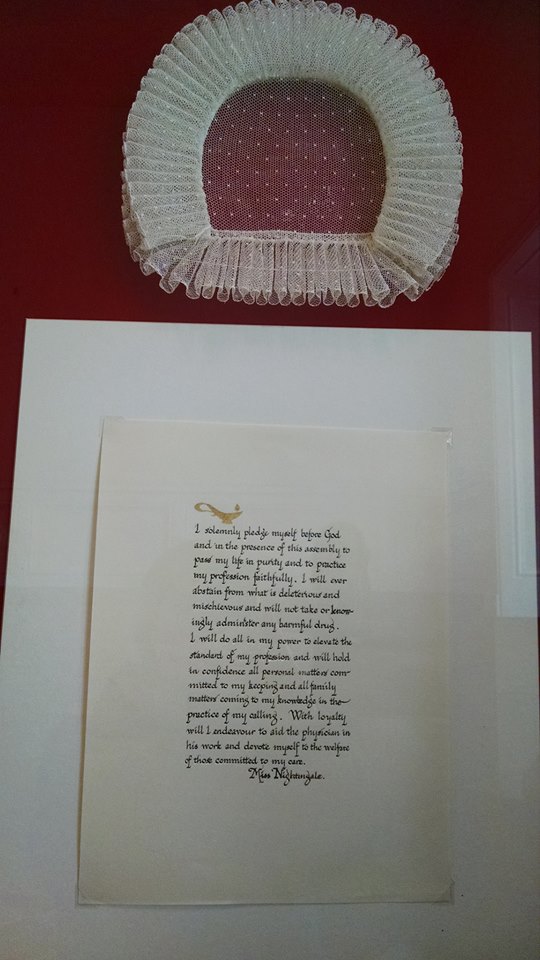 I solemnly pledge myself before God
and in the presence of this assembly to
pass my life in purity and to practice
my profession faithfully. I will ever
abstain from what is deleterious and
mischievous and will not take or know-
ingly administer any harmful drug.
I will do all in my power to elevate the
standard of my profession and will hold
in confidence all personal matters com-
mitted to my keeping and all family
matters coming to my knowledge in the
practice of my calling. With loyalty
will I endeavour to aid the physician in
his work and devote myself to the welfare
of those committed to my care.
Miss Nightingale.